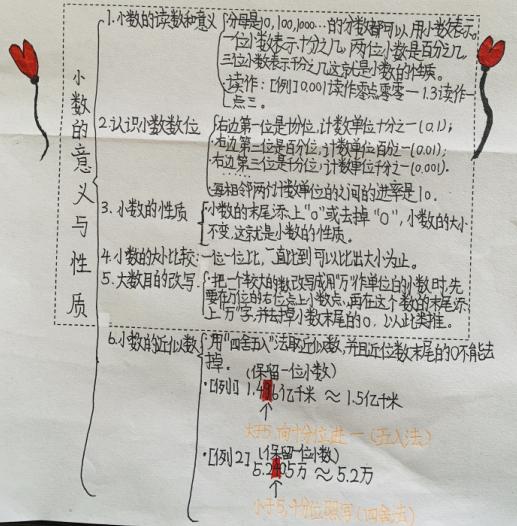 小数的意义与性质
1.小数的读数和意义
分母是10,100,1000…的分数都可以用小数表示。
一位小数表示十分之几,两位小数是百分之几,
三位小数表示千分之几这就是小数的性质。
读作:[例]0.001读作零点零零一 1.3读作一
点三。
2.认识小数数位
右边第一位是十分位,计数单位十分之一(0.1);
右边第二位是百分位;计数单位百分之一(0.01);
右边第三位是千分位;计数单位千分之一(0.001).
……
每相邻两个计数单位的之间的进率是10.
3.小数的性质
小数的末尾添上"0"或去掉"0",小数的大小
不变,这就是小数的性质。
4.小数的大小比较:一位一位比,一直比到可以比出大小为止。
5.大数目的改写.
把一个较大的数改写成用"万"作单位的小数时,先
要在万位的右位点上小数点,再在这个数的末尾添
上"万"字,并去掉小数末尾的0,以此类推。
6.小数的近似数
用"四舍五入"法取近似数,并且近位数末尾的0不能去
掉。
(保留一位小数)
·[例1] 1.496亿千米 ≈ 1.5亿千米
大于5,向十分位进一(五入法)
(保留一位小数)
·[例2] 5.2405万 ≈ 5.2万
小于5,十分位照写(四舍法)